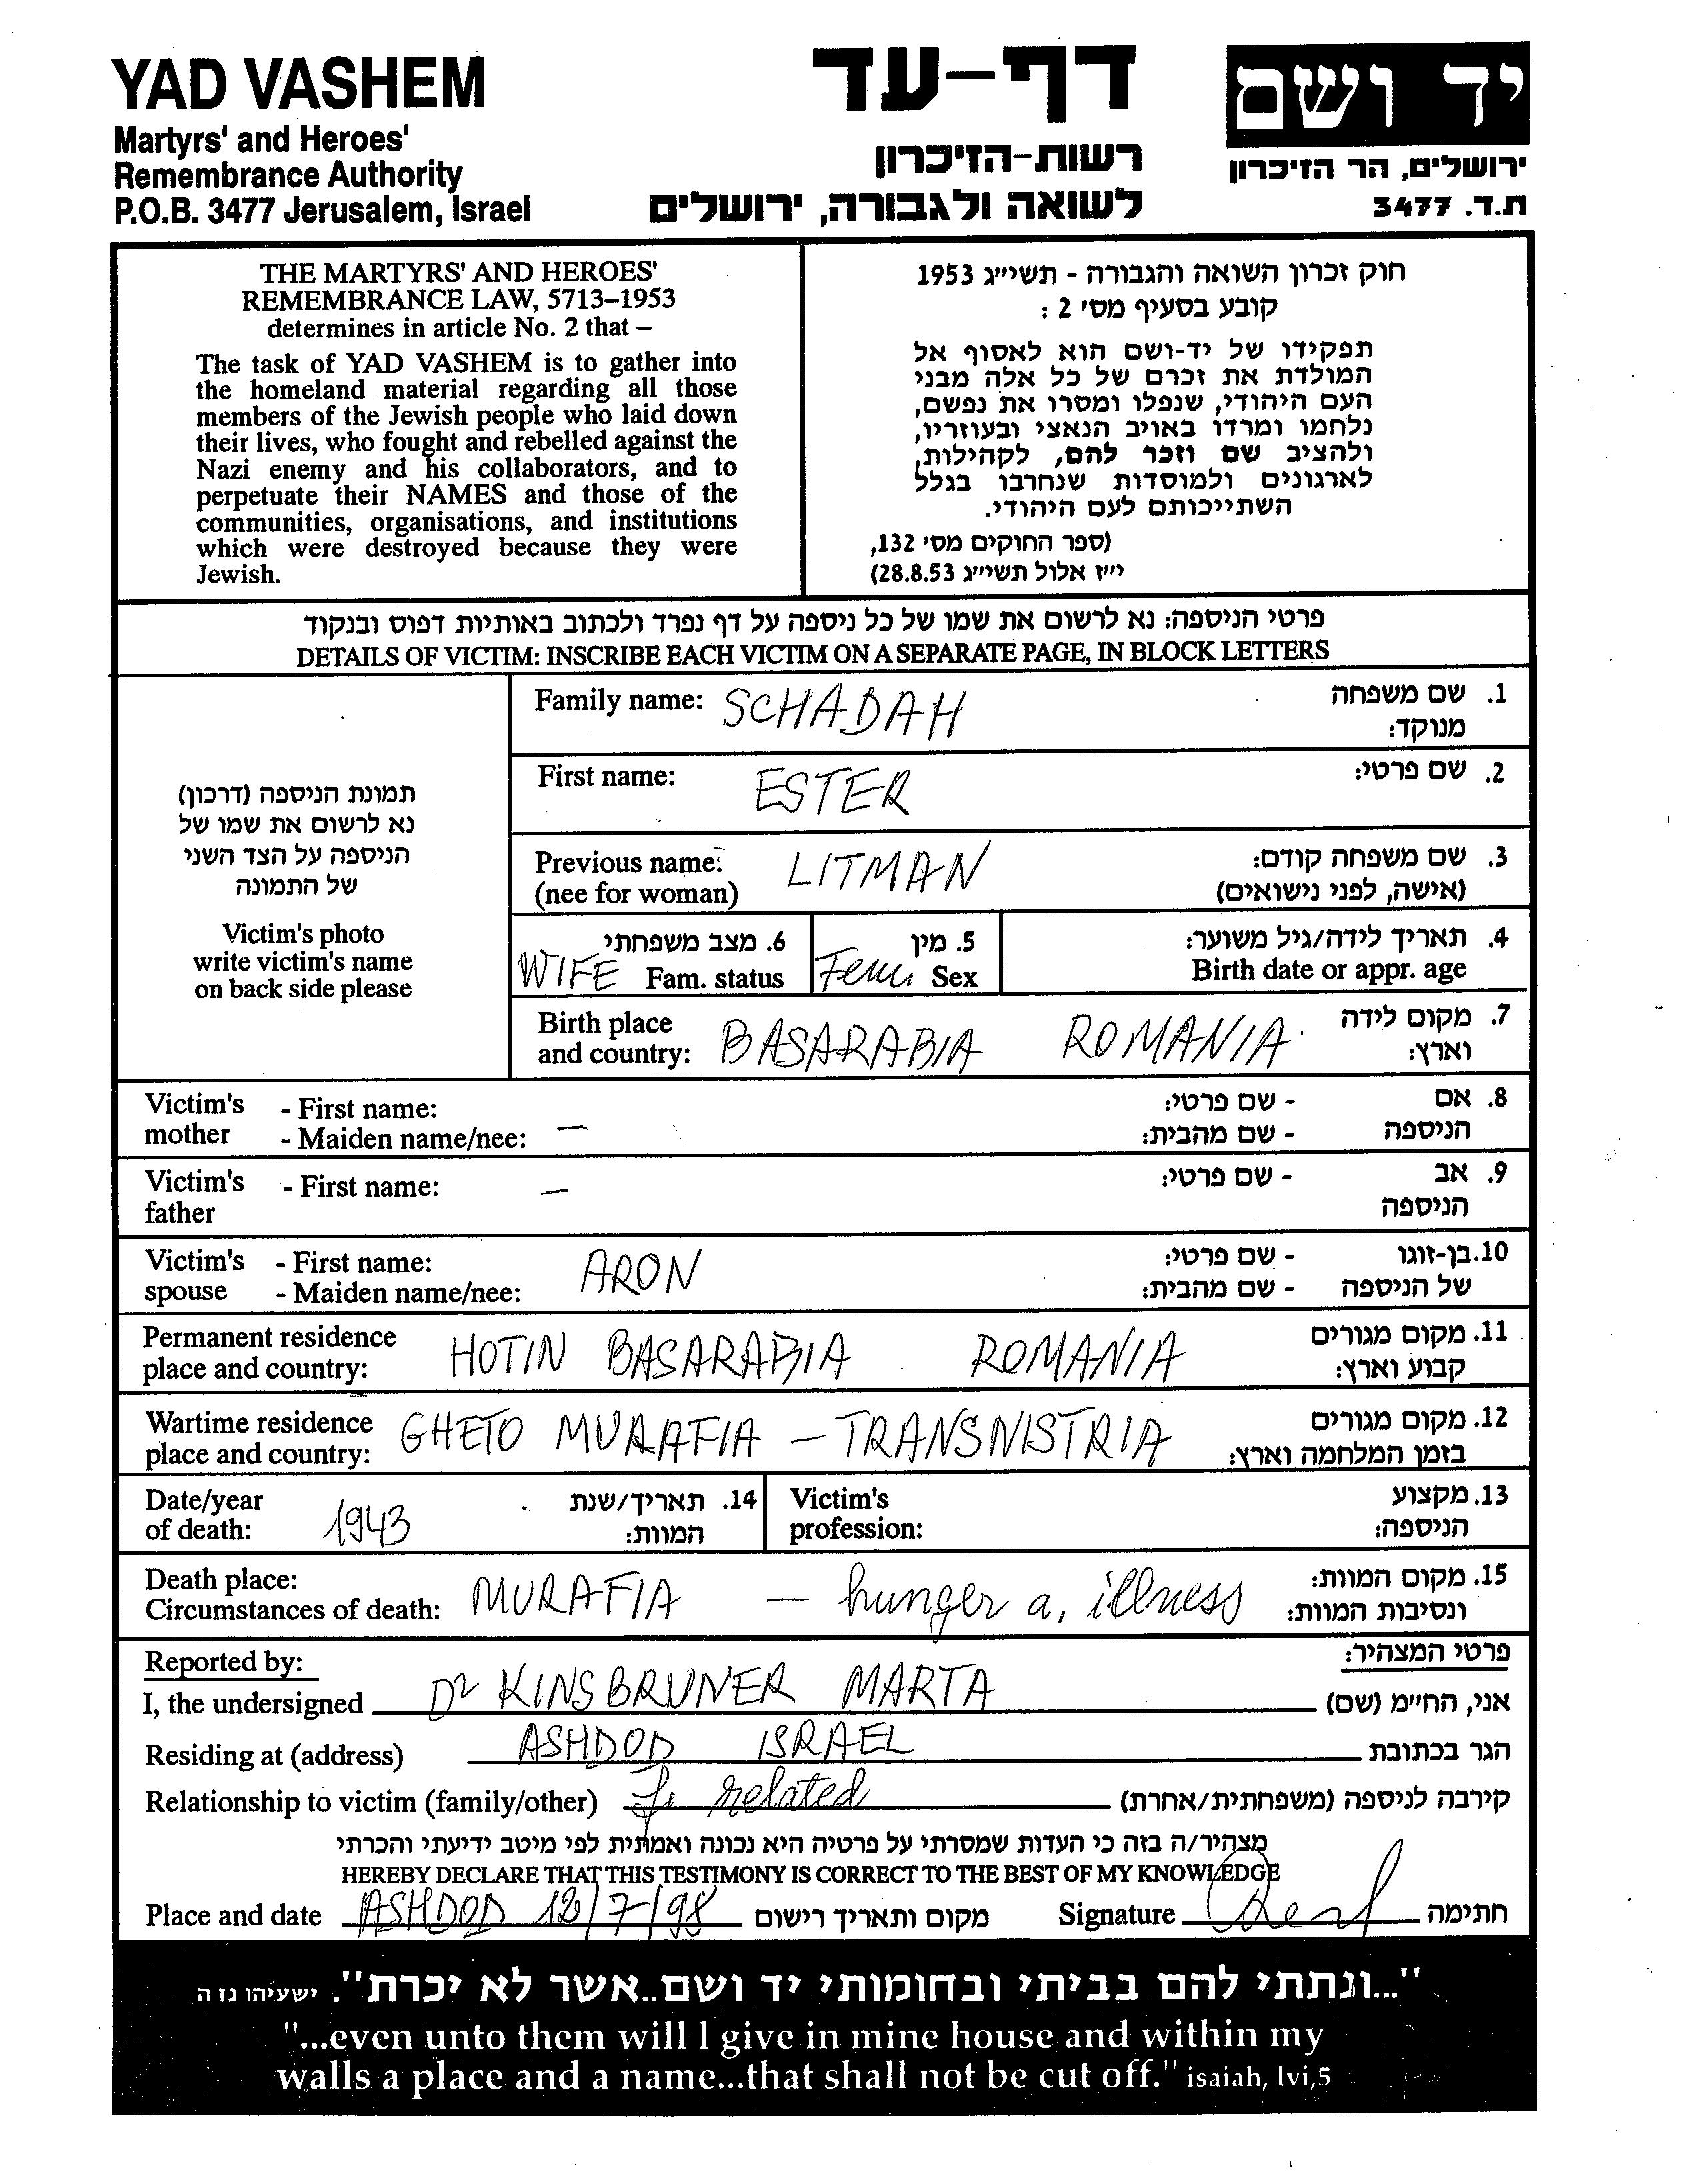 YAD VASHEM
Martyrs' and Heroes'
Remembrance Authority
P.O.B. 3477 Jerusalem, Israel
דף-עד
רשות-הזיכרון
לשואה ולגבורה, ירושלים
יד ושם
ירושלים, הר הזיכרון
ת.ד. 3477
THE MARTYRS' AND HEROES'
REMEMBRANCE LAW, 5713–1953
determines in article No. 2 that –
The task of YAD VASHEM is to gather into
the homeland material regarding all those
members of the Jewish people who laid down
their lives, who fought and rebelled against the
Nazi enemy and his collaborators, and to
perpetuate their NAMES and those of the
communities, organisations, and institutions
which were destroyed because they were
Jewish.
חוק זכרון השואה והגבורה - תשי״ג 1953
קובע בסעיף מס׳ 2 :
תפקידו של יד-ושם הוא לאסוף אל
המולדת את זכרם של כל אלה מבני
העם היהודי, שנפלו ומסרו את נפשם,
נלחמו ומרדו באויב הנאצי ובעוזריו,
ולהציב שם וזכר להם, לקהילות,
לארגונים ולמוסדות שנחרבו בגלל
השתייכותם לעם היהודי.
(ספר החוקים מס׳ 132,
י״ז אלול תשי״ג 28.8.53)
פרטי הניספה: נא לרשום את שמו של כל ניספה על דף נפרד ולכתוב באותיות דפוס ובנקוד
DETAILS OF VICTIM: INSCRIBE EACH VICTIM ON A SEPARATE PAGE, IN BLOCK LETTERS
תמונת הניספה (דרכון)
נא לרשום את שמו של
הניספה על הצד השני
של התמונה
Victim's photo
write victim's name
on back side please
Family name: SCHADAH 1. שם משפחה
מנוקד:
First name: ESTER 2. שם פרטי:
Previous name: LITMAN 3. שם משפחה קודם:
(nee for woman) (אישה, לפני נישואים)
6. מצב משפחתי 5. מין 4. תאריך לידה/גיל משוער:
WIFE Fam. status Fem Sex Birth date or appr. age
Birth place 7. מקום לידה
and country: BASARABIA ROMANIA וארץ:
Victim's - First name: - שם פרטי: 8. אם
mother - Maiden name/nee: — - שם מהבית: הניספה
Victim's - First name: — - שם פרטי: 9. אב
father הניספה
Victim's - First name: ARON - שם פרטי: 10. בן-זוגו
spouse - Maiden name/nee: - שם מהבית: של הניספה
Permanent residence 11. מקום מגורים
place and country: HOTIN BASARABIA ROMANIA קבוע וארץ:
Wartime residence 12. מקום מגורים
place and country: GHETO MURAFIA – TRANSNISTRIA בזמן המלחמה וארץ:
Date/year 14. תאריך/שנת Victim's 13. מקצוע
of death: 1943 המוות: profession: הניספה:
Death place: 15. מקום המוות:
Circumstances of death: MURAFIA – hunger a, illness ונסיבות המוות:
Reported by: פרטי המצהיר:
I, the undersigned Dr KINSBRUNER MARTA אני, הח״מ (שם)
Residing at (address) ASHDOD ISRAEL הגר בכתובת
Relationship to victim (family/other) related קירבה לניספה (משפחתית/אחרת)
מצהיר/ה בזה כי העדות שמסרתי על פרטיה היא נכונה ואמתית לפי מיטב ידיעתי והכרתי
HEREBY DECLARE THAT THIS TESTIMONY IS CORRECT TO THE BEST OF MY KNOWLEDGE
Place and date ASHDOD 12/7/98 מקום ותאריך רישום Signature חתימה
"...ונתתי להם בביתי ובחומותי יד ושם..אשר לא יכרת". ישעיהו נז ה
"...even unto them will I give in mine house and within my
walls a place and a name...that shall not be cut off." isaiah, lvi,5